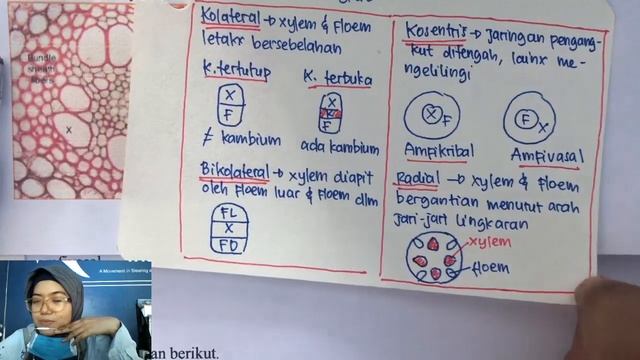 Bundle
sheath
fibers
X
Kolateral → xylem & Floem
letakx bersebelahan
K. tertutup
K. terbuka
X
F
X
K
F
≠ kambium
ada kambium
Bikolateral → xylem diapit
oleh Floem luar & Floem dlm
FL
X
FD
Kosentris → Jaringan pengang-
kut ditengah, lainx me-
ngelilingi
X F
F X
Amfikribal
Amfivasal
Radial → xylem & floem
bergantian menurut arah
Jari-jari lingkaran
xylem
floem
A Movement in Steering
an berikut.